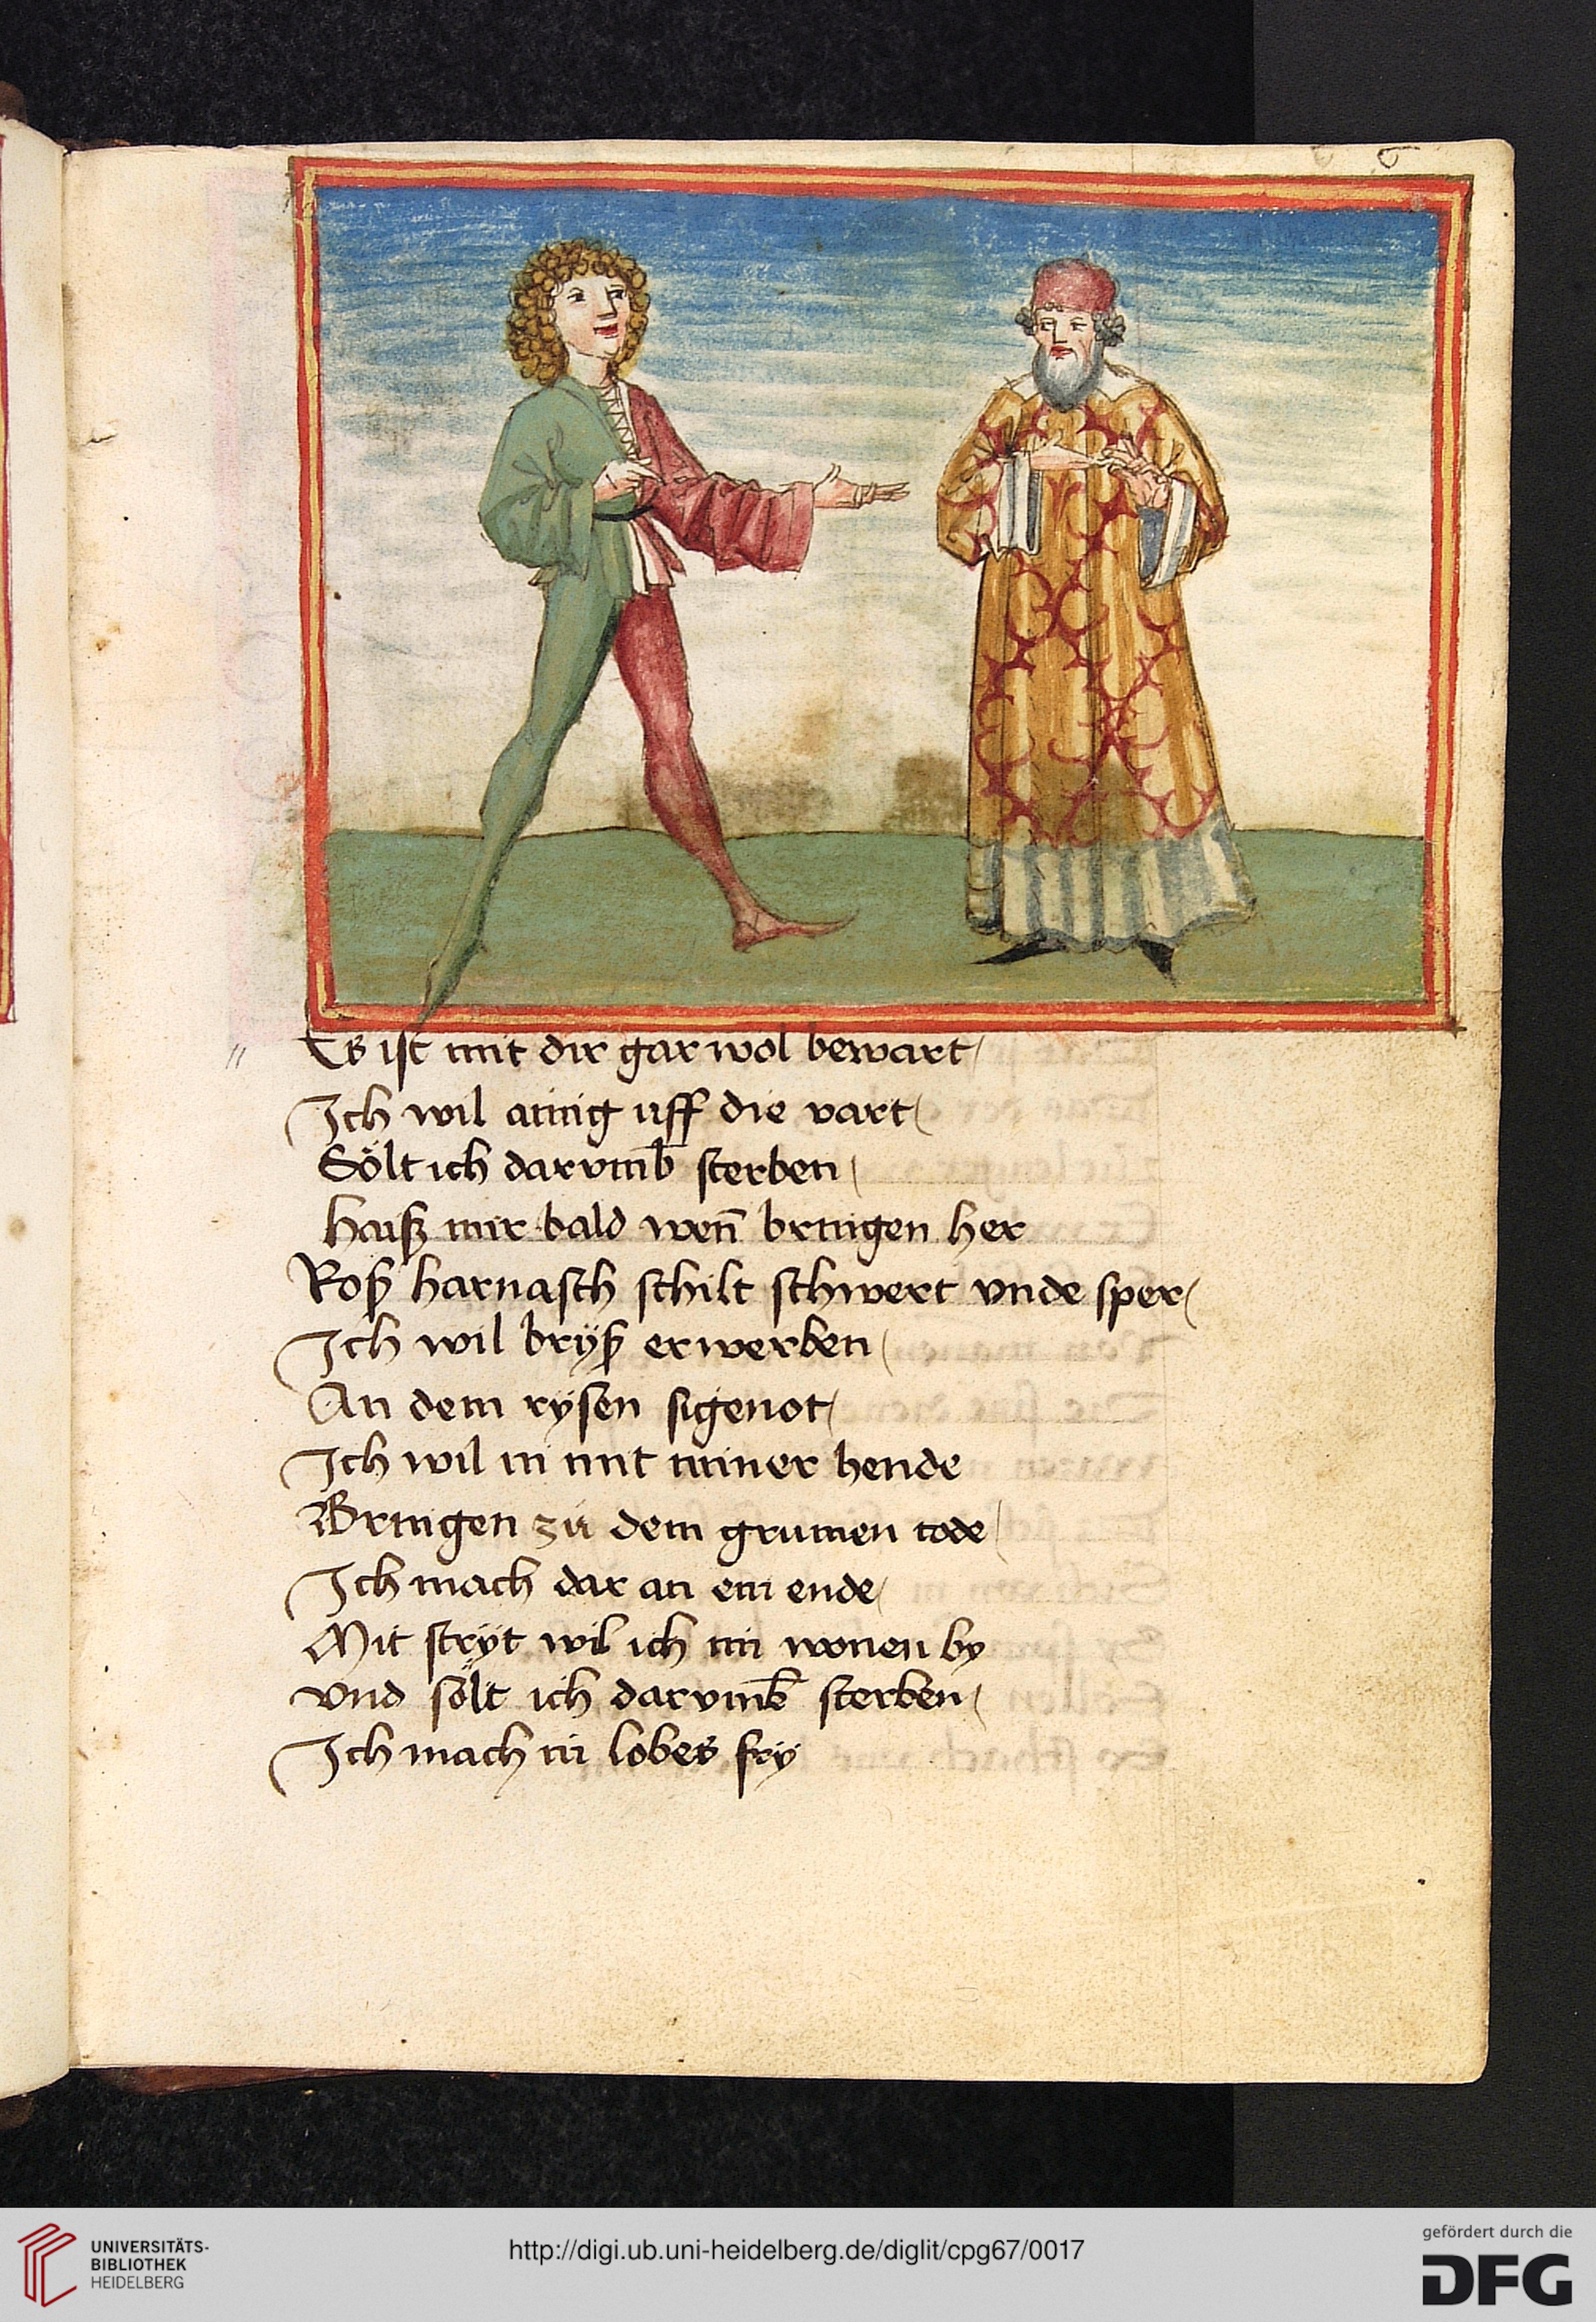 6
11 Es ist mit dir gar wol bewart
Ich wil ainig uff die vart
Sölt ich darvmb̄ sterben
Haiß mir bald wen̄ bringen her
Roß harnasch schilt schwert vnde sper
Ich wil brÿß erwerben
An dem rÿsen sigenot
Ich wil in mit miner hende
Bringen zu dem grimen tode
Ich mach dar an ein ende
Mit strÿt wil ich im wonen by
vnd sölt ich darvmb̄ sterben
Ich mach in lobes frÿ
UNIVERSITÄTS-
BIBLIOTHEK
HEIDELBERG
http://digi.ub.uni-heidelberg.de/diglit/cpg67/0017
gefördert durch die
DFG